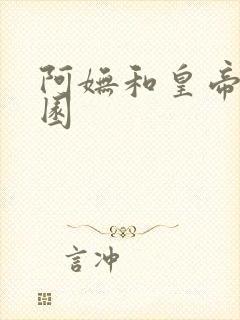 阿嫵和皇帝
園
言冲